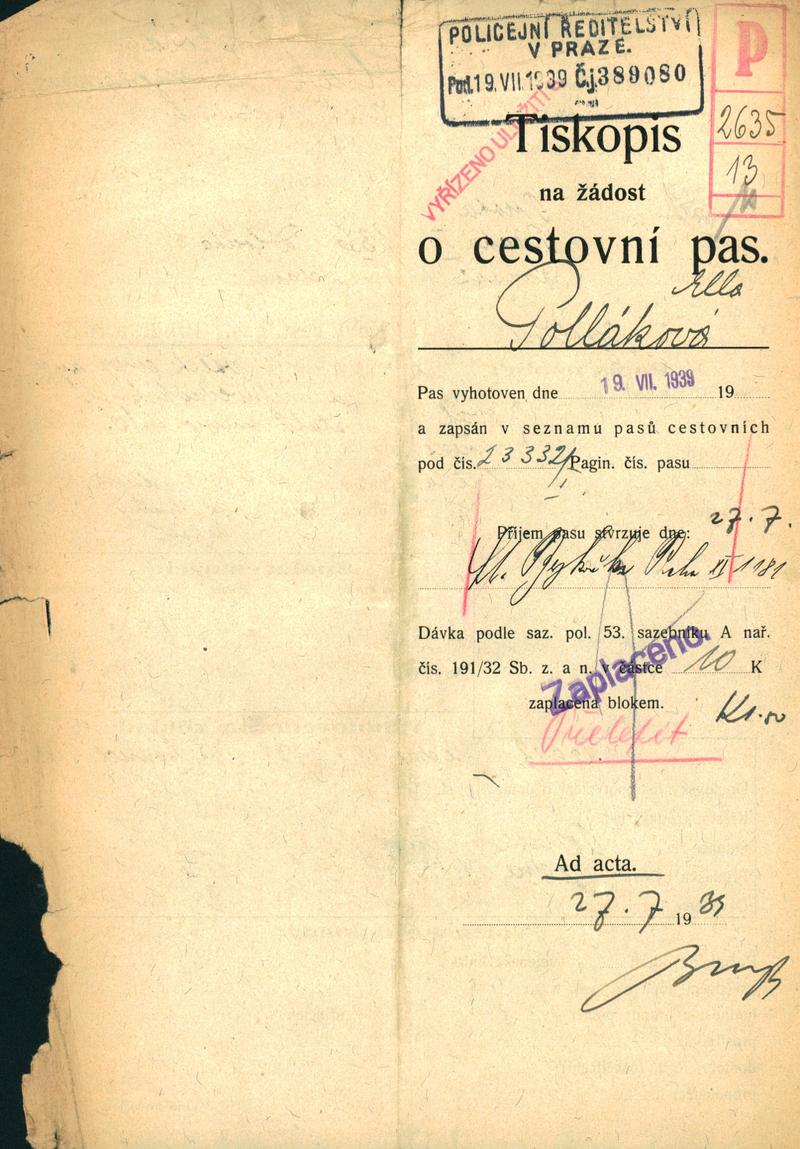 POLICEJNÍ ŘEDITELSTVÍ
V PRAZE.
Pod. 19. VII. 1939 Čj. 389080
P
2635
13
VYŘÍZENO ULOŽITI
Tiskopis
na žádost
o cestovní pas.
Ella
Polláková
Pas vyhotoven dne 19. VII. 1939 19
a zapsán v seznamu pasů cestovních
pod čís. 23332/ Pagin. čís. pasu
Příjem pasu stvrzuje dne: 27. 7.
Praha XI 1181
Dávka podle saz. pol. 53. sazebníku A nař.
čís. 191/32 Sb. z. a n. v částce 10 K
zaplacena blokem.
Zaplaceno.
K 1.50
Ad acta.
27. 7 1939